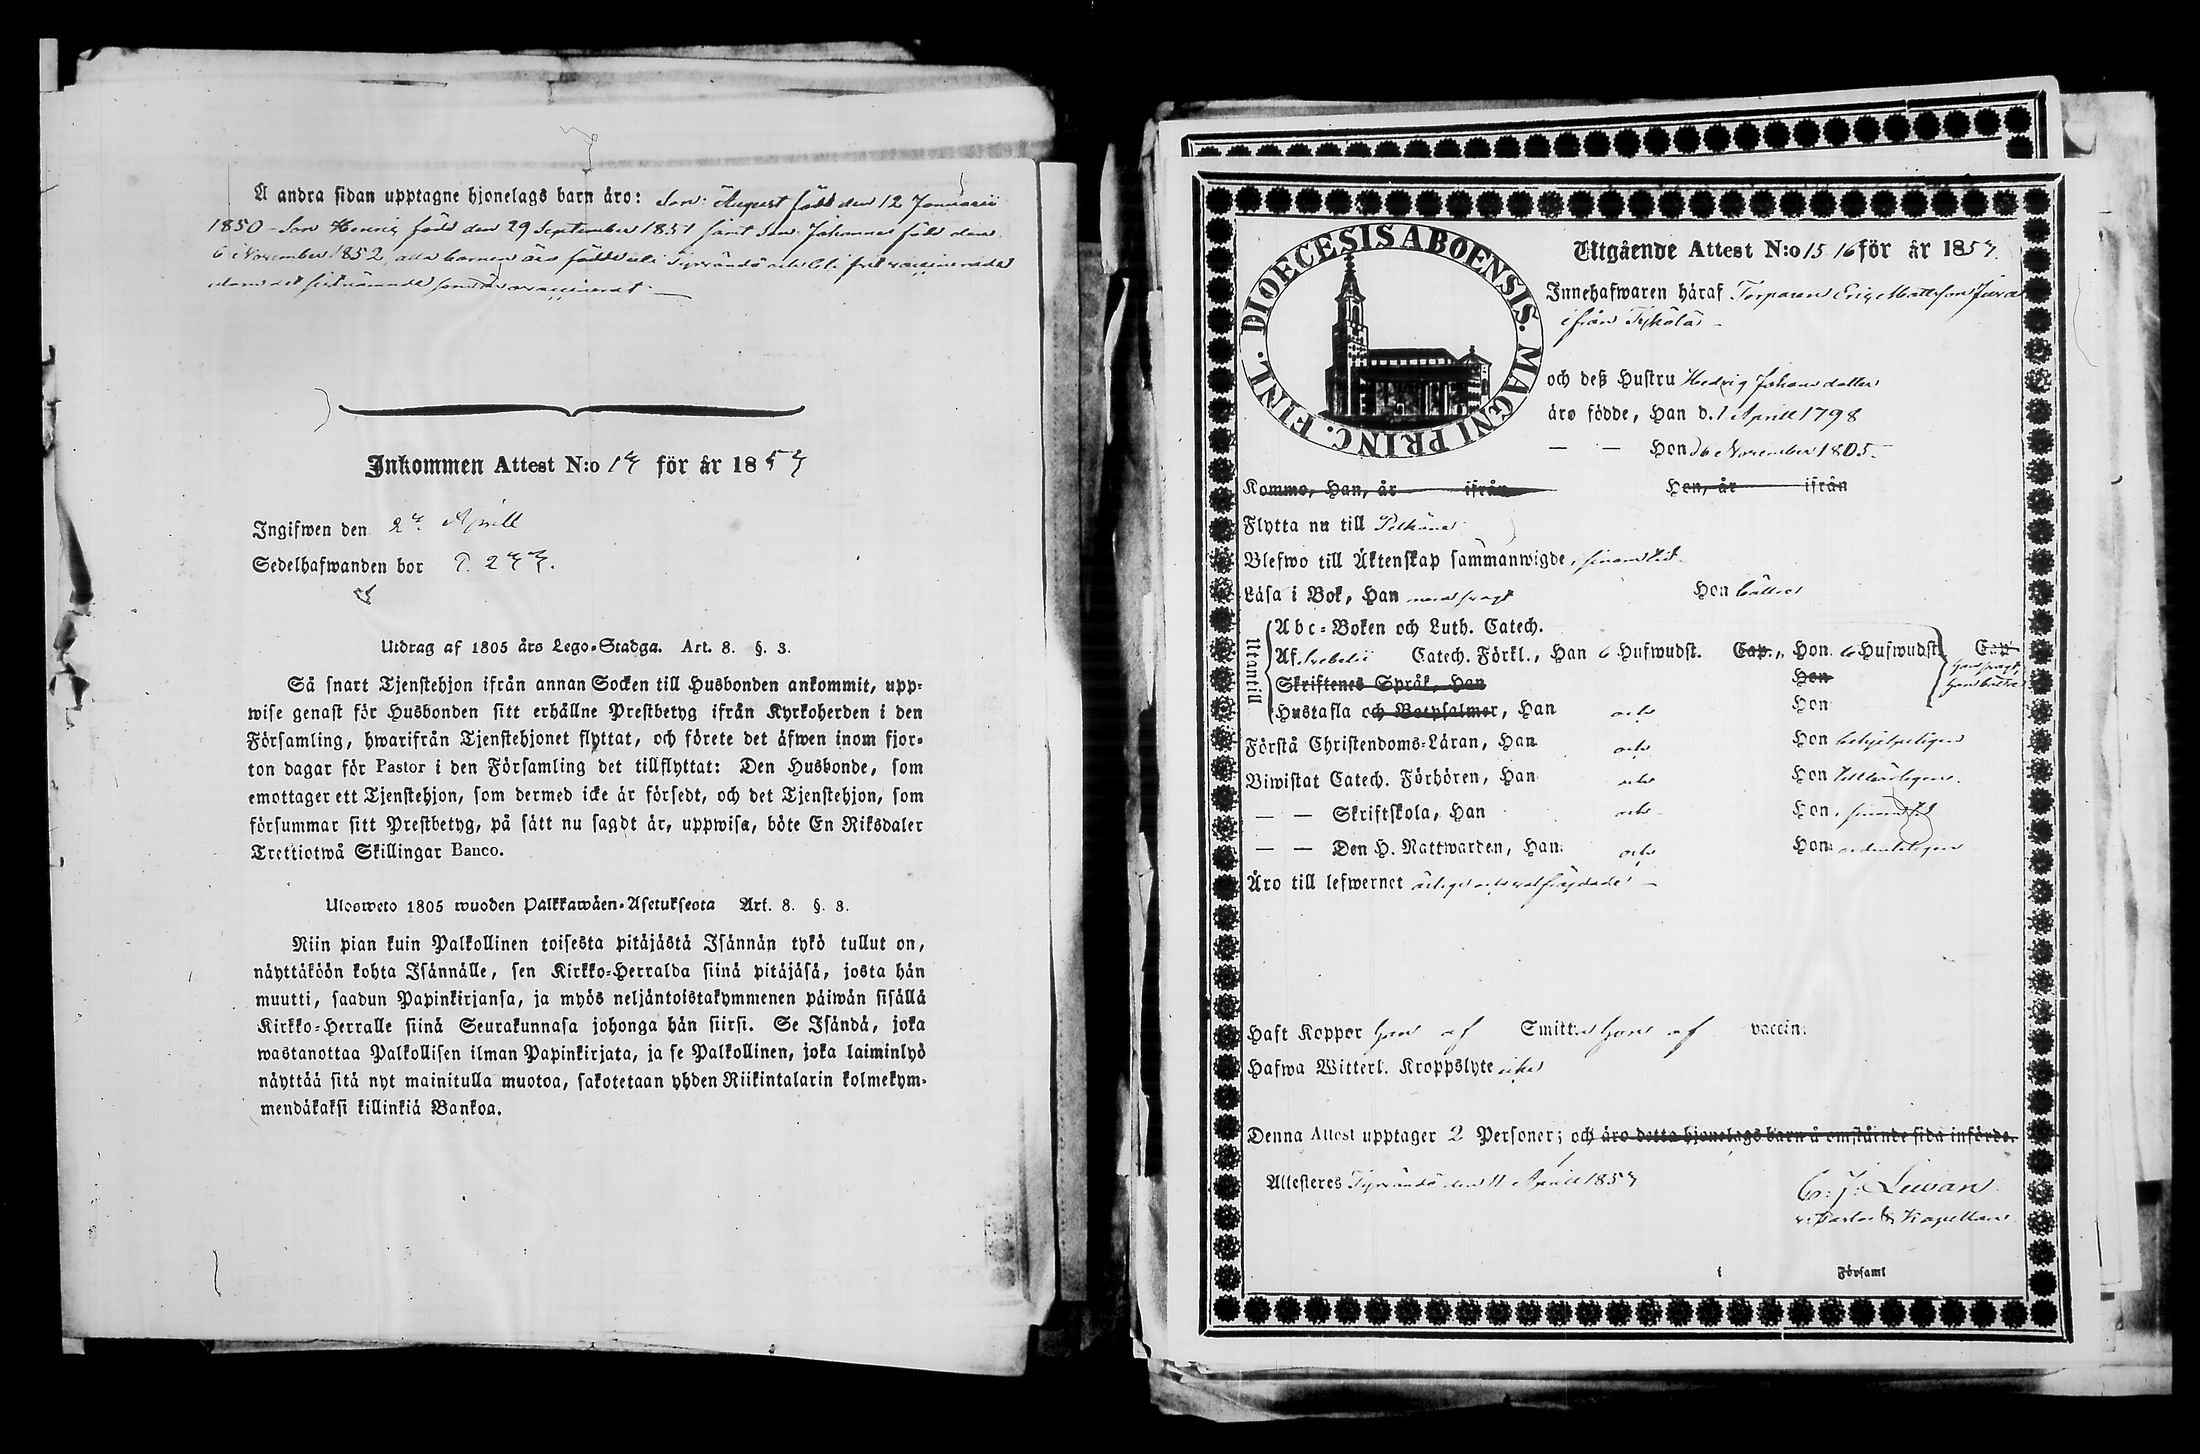 Å andra sidan upptagne hjonelags barn äro: Son: August född den 12 Januarii
1850 - Son Henric född den 29 September 1851 samt Son Johannes född den
6 November 1852, alla barnen äro födde uti Tyrvändö och bli
Inkommen Attest N:o 17 för år 1857
Ingifwen den 27 April
Sedelhafwanden bor P. 277.
Utdrag af 1805 års Lego-Stadga. Art. 8. §. 3.
Så snart Tjenstehjon ifrån annan Socken till Husbonden ankommit, upp-
wise genast för Husbonden sitt erhållne Prestbetyg ifrån Kyrkoherden i den
Församling, hwarifrån Tjenstehjonet flyttat, och förete det äfwen inom fjor-
ton dagar för Pastor i den Församling det tillflyttat: Den Husbonde, som
emottager ett Tjenstehjon, som dermed icke är försedt, och det Tjenstehjon, som
försummar sitt Prestbetyg, på sätt nu sagdt är, uppwisa, böte En Riksdaler
Trettiotwå Skillingar Banco.
Ulosweto 1805 wuoden Palkkawäen-Asetuksesta Art. 8. §. 3.
Niin pian kuin Palkollinen toisesta pitäjästä Isännän tykö tullut on,
näyttäköön kohta Isännälle, sen Kirkko-Herralda siinä pitäjäsä, josta hän
muutti, saadun Papinkirjansa, ja myös neljäntoistakymmenen päiwän sisällä
Kirkko-Herralle siinä Seurakunnasa johonga hän siirsi. Se Isändä, joka
wastanottaa Palkollisen ilman Papinkirjata, ja se Palkollinen, joka laiminlyö
näyttää sitä nyt mainitulla muotoa, sakotetaan yhden Riikintalarin kolmekym-
mendäkaksi killinkiä Bankoa.
DIOECESIS ABOENSIS. MAGNI PRINC. FINL.
Utgående Attest N:o 15 16 för år 1857.
Innehafwaren häraf Torparen Eric Mattsson Jära
ifrån Tykölä
och deß Hustru Hedvig Johansdotter
äro födde, Han d. 1 April 1798
— — Hon d 6 November 1805.
Kommo, Han, år ifrån Hon, år ifrån
Flytta nu till Pelkäne
Blefwo till Äktenskap sammanwigde,
Läsa i Bok, Han nödtorftigt Hon bättre
Utantill
Abc-Boken och Luth. Catech.
Af Svebelii Catech. Förkl., Han 6 Hufwudst. Cap., Hon 6 Hufwudst. Cap
Skriftenes Språk, Han Hon
Hustafla och Botpsalmer, Han och Hon
Förstå Christendoms-Läran, Han och Hon behjelpeligen
Biwistat Catech. Förhören, Han och Hon tillbörligen
— — Skriftskola, Han och Hon,
— — Den H. Nattwarden, Han och Hon ordenteligen
Äro till lefwernet ärlige och välfrägdade
Haft Koppor Han af Smitta Hon af vaccin.
Hafwa Witterl. Kroppslyte icke
Denna Attest upptager 2 Personer; och äro detta hjonelags barn å omstående sida införde.
Attesteras Tyrvändö den 11 April 1857
v. Pastor & Kapellan
i Församl